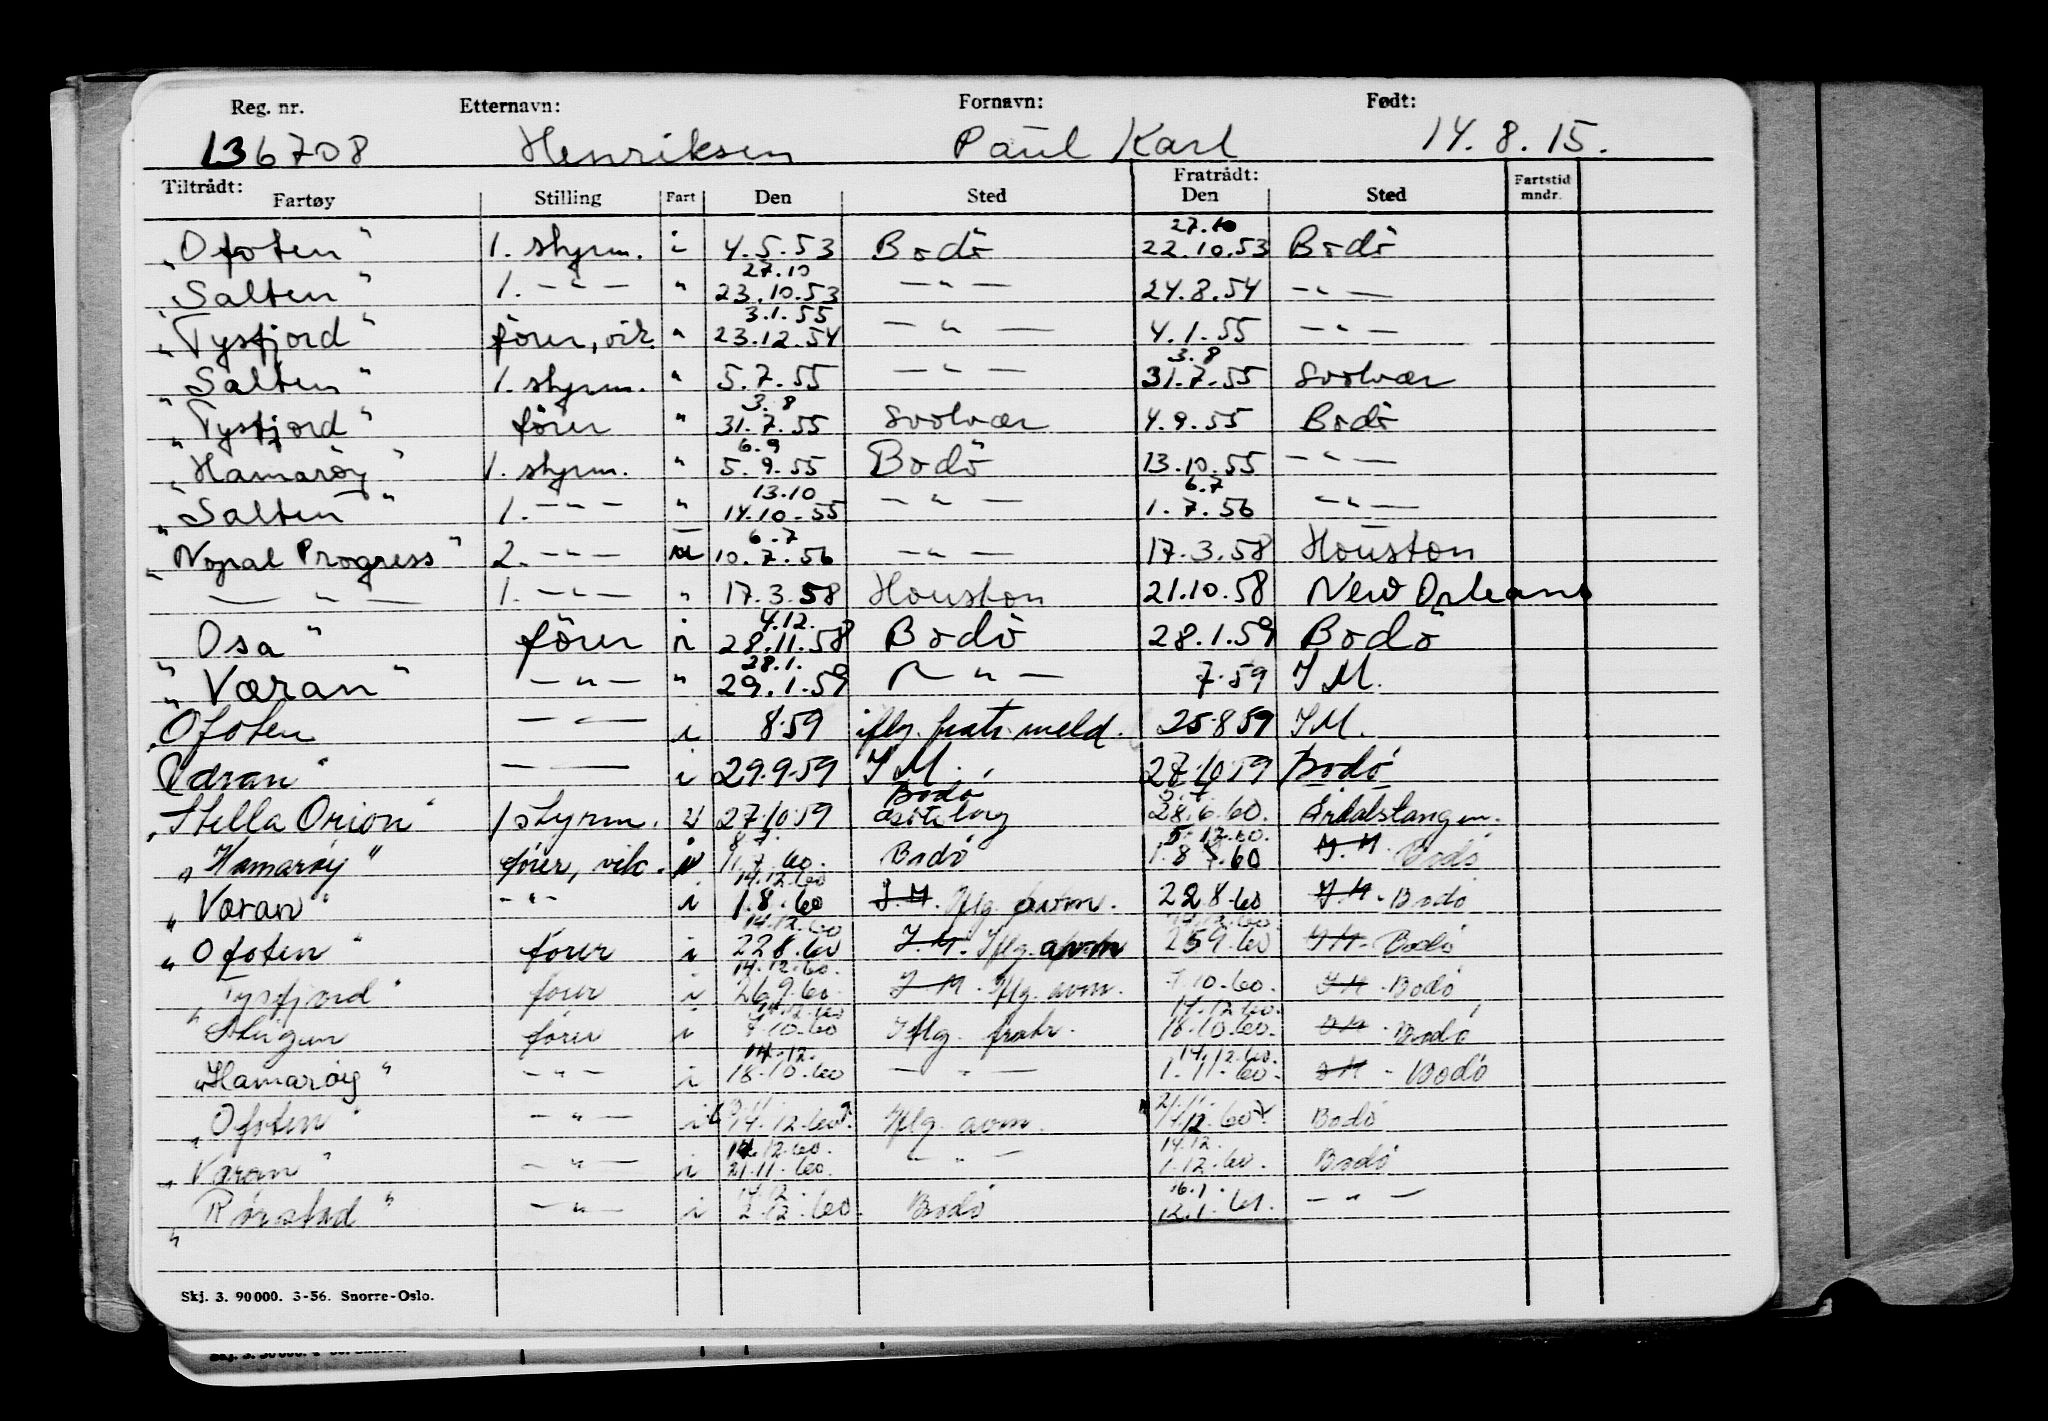 Reg. nr. Etternavn: Fornavn: Født:
136708 Henriksen Paul Karl 14.8.15.
Tiltrådt: Fratrådt:
Fartøy Stilling Fart Den Sted Den Sted Fartstid mndr.
27.10
"Ofoten" 1. styrm. i 4.5.53 Bodö 22.10.53 Bodö
27.10
"Salten" 1. — " — " 23.10.53 — " — 24.8.54 — " —
3.1.55
"Tysfjord" förer, vik. " 23.12.54 — " — 4.1.55 — " —
3.8
"Salten" 1. styrm. " 5.7.55 — " — 31.7.55 Svolvær
3.8
"Tysfjord" förer " 31.7.55 Svolvær 4.9.55 Bodö
6.9
"Hamaröy" 1. styrm. " 5.9.55 Bodö 13.10.55 — " —
13.10 6.7
"Salten" 1. — " — " 14.10.55 — " — 1.7.56 — " —
6.7
"Nopal Progress" 2. — " — u 10.7.56 — " — 17.3.58 Houston
— " — 1. — " — " 17.3.58 Houston 21.10.58 New Orleans
4.12.
"Osa" förer i 28.11.58 Bodö 28.1.59 Bodö
28.1.
"Væran" — " — " 29.1.59 — " — 7.59 I M.
Ofoten — " — i 8.59 iflg. fratr. meld. 25.8.59 I M.
Væran" — — i 29.9.59 I M. 27.10.59 Bodö
Bodö
"Stella Orion" 1 styrm. u 27.10.59 28.6.60. Årdalstangen.
8.7. 5.12.60.
"Hamarøy" fører, vik. i 11.7.60. Bodø 1.8.60 I.M. Bodø
14.12.60
"Væran" - " - i 1.8.60 I.M. Iflg. avm. 22.8.60 I.M. Bodø
14.12.60
"Ofoten" fører i 22.8.60 I.M. Iflg. avm 25.9.60 I M. Bodø
14.12.60.
"Tysfjord" fører i 26.9.60. I M. Iflg. avm. 7.10.60. I M. Bodø
14.12.60 14.12.60.
"Steigen fører i 8.10.60 Iflg. fratr. 18.10.60. I M. Bodø
14.12. 14.12.60.
"Hamarøy" - " - i 18.10.60 — " — 1.11.60. I M - Bodø
21.11.
"Ofoten" - " - i 14.12.60 Iflg. avm. 14.12.60 Bodø
14.12.60. 14.12.
"Væran" - " - i 21.11.60. - " - 1.12.60. Bodø
14.12. 16.1.
"Rørstad" - " - i 2.12.60. Bodø 12.1.61. — " —
Skj. 3. 90 000. 3-56. Snorre-Oslo.